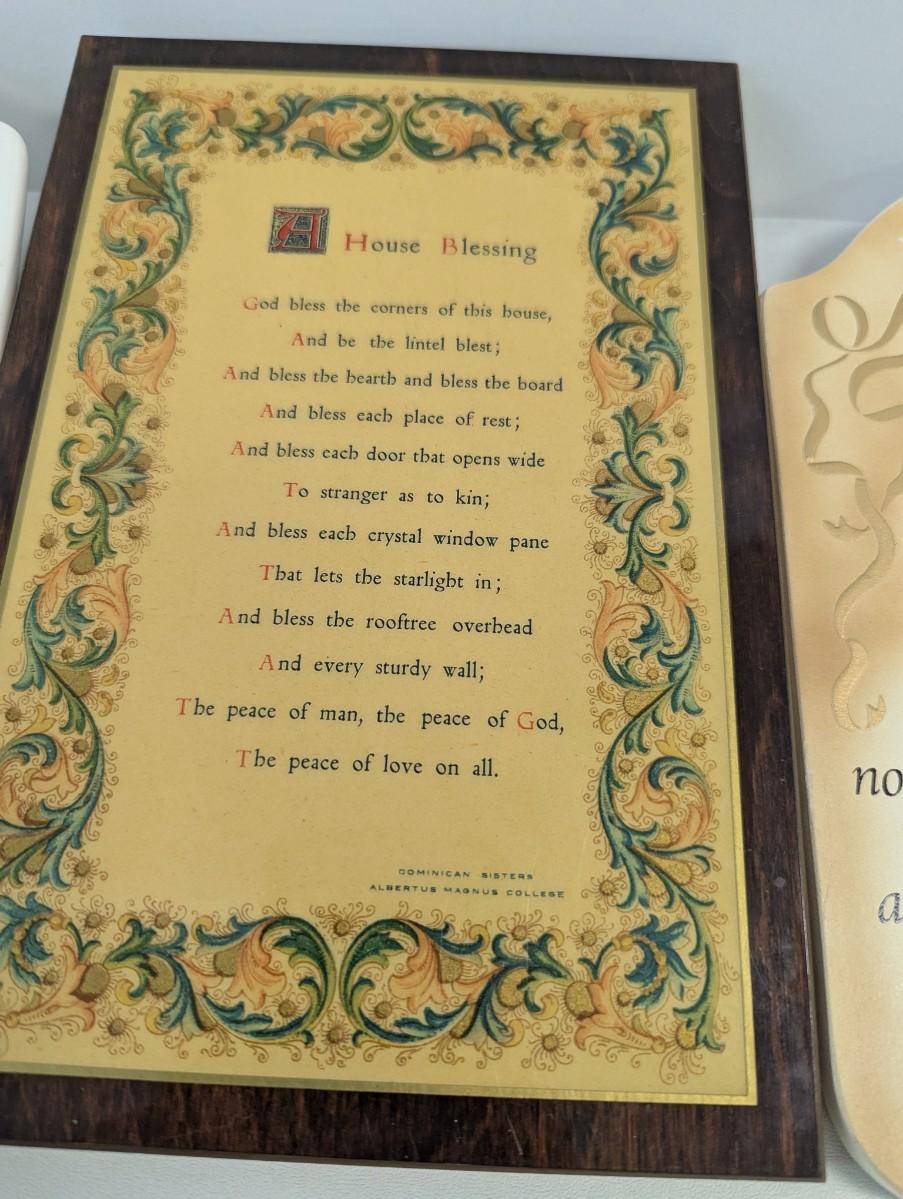 A House Blessing
God bless the corners of this house,
And be the lintel blest;
And bless the hearth and bless the board
And bless each place of rest;
And bless each door that opens wide
To stranger as to kin;
And bless each crystal window pane
That lets the starlight in;
And bless the rooftree overhead
And every sturdy wall;
The peace of man, the peace of God,
The peace of love on all.
DOMINICAN SISTERS
ALBERTUS MAGNUS COLLEGE
no
a